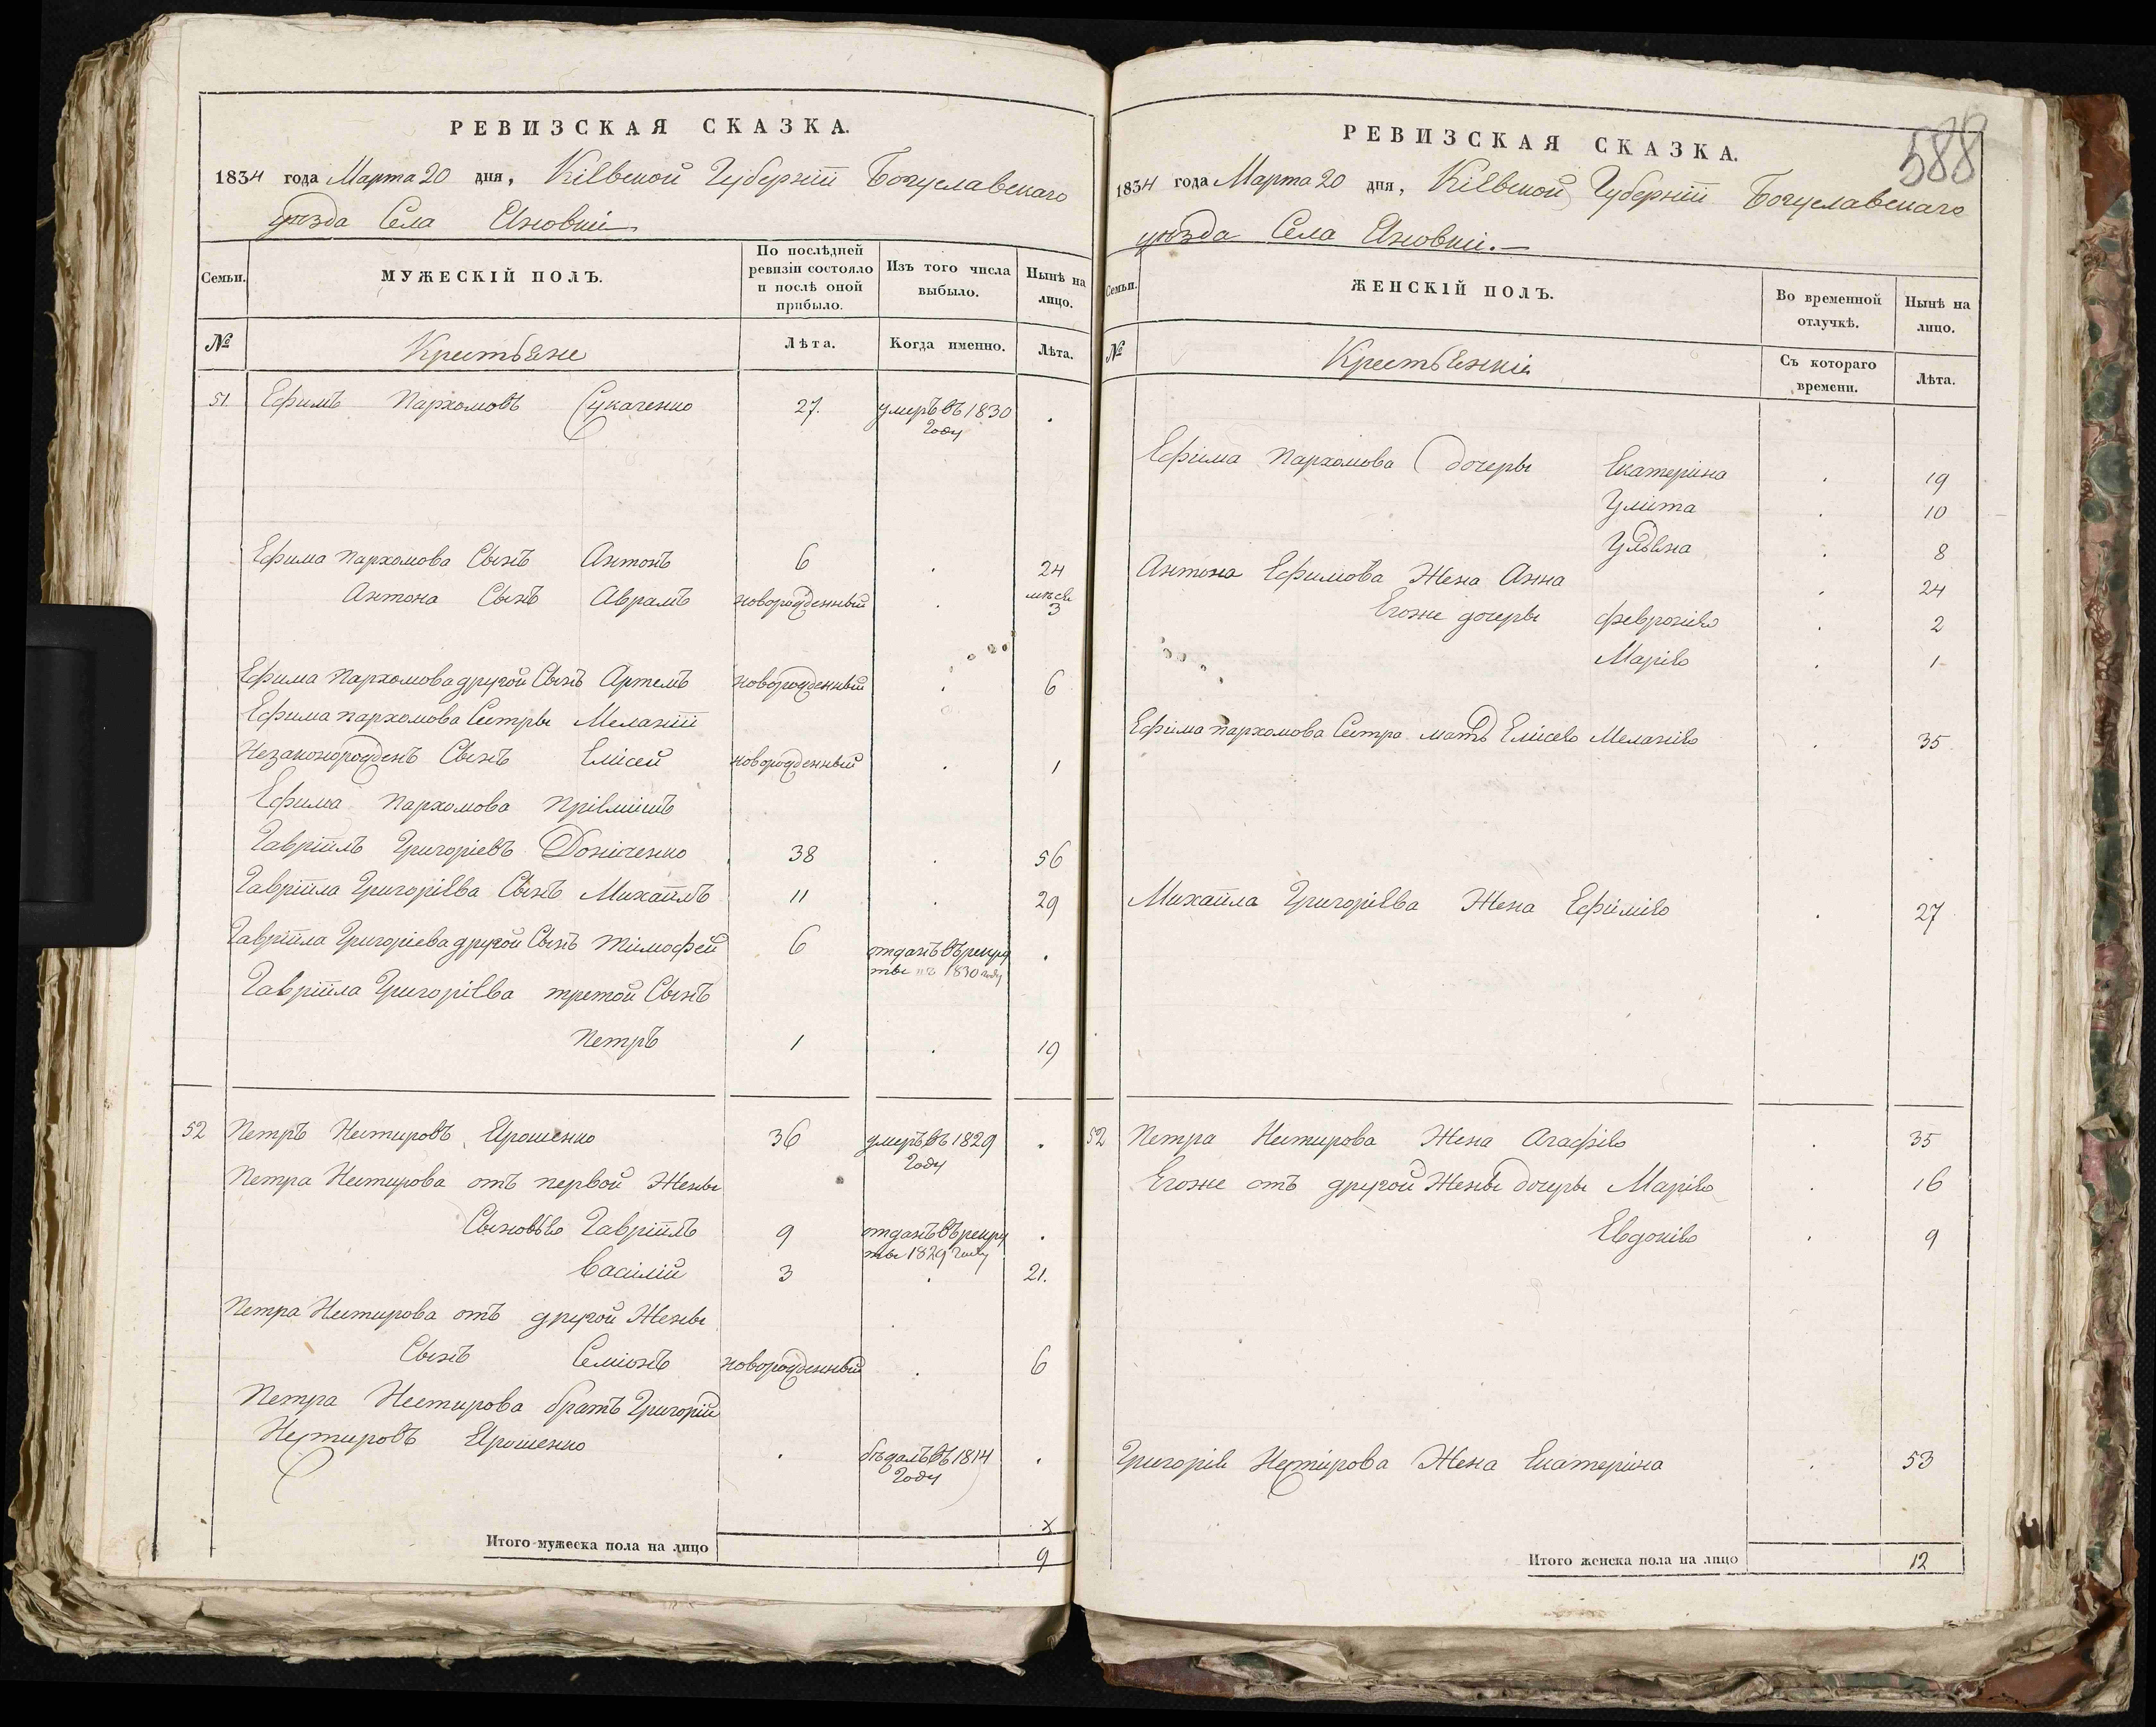 РЕВИЗСКАЯ СКАЗКА.
1834 года Марта 20 дня, Кіевской Губерніи Богуславскаго
уѣзда Села Яновки
Семьи.
МУЖЕСКІЙ ПОЛЪ.
По послѣдней ревизіи состояло и послѣ оной прибыло.
Изъ того числа выбыло.
Нынѣ на лицо.
№ Крестьяне Лѣта. Когда именно. Лѣта.
51. Ефимъ Пархомовъ Сукаченко 27. умеръ въ 1830 .
году
Ефима Пархомова Сынъ Антонъ 6 . 24
Антона Сынъ Аврамъ новорожденный . мѣсяц 3
Ефима Пархомова другой Сынъ Артемъ новорожденный . 6
Ефима пархомова Сестры Меланіи
Незаконорожденъ Сынъ Елисей новорожденный . 1
Ефима Пархомова Пріемишъ
Гавріилъ Григоріевъ Дониченко 38 . 56
Гавріила Григоріева Сынъ Михаилъ 11 . 29
Гавріила Григоріева другой Сынъ Тимофей 6 отданъ въ рекру .
ты въ 1830 году
Гавріила Григоріева третой Сынъ
Петръ 1 . 19
52 Петръ Нестировъ Ярошенко 36 умеръ въ 1829 .
году
Петра Нестирова отъ первой Жены
Сыновья Гавріилъ 9 отданъ въ рекру .
ты 1829 году
Василій 3 . 21.
Петра Нестирова отъ другой Жены
Сынъ Семіонъ новорожденный . 6
Петра Нестирова братъ Григорій
Нестировъ Ярошенко . бѣжалъ въ 1814 .
году
х
Итого мужеска пола на лицо 9
588
РЕВИЗСКАЯ СКАЗКА.
1834 года Марта 20 дня, Кіевской Губерніи Богуславскаго
уѣзда Села Яновки.
Семьи.
ЖЕНСКІЙ ПОЛЪ.
Во временной отлучкѣ.
Нынѣ на лицо.
№ Крестьянки Съ котораго времени. Лѣта.
Ефима Пархомова дочеры Екатерина . 19
Улита . 10
Ульяна . 8
Антона Ефимова Жена Анна . 24
Егоже дочеры Февронія . 2
Марія . 1
Ефима Пархомова Сестра мать Елисея Меланія . 35
Михаила Григоріева Жена Ефимія . 27
52 Петра Нестирова Жена Агафія . 35
Егоже отъ другой Жены дочеры Марія . 16
Евдокія . 9
Григорія Нестирова Жена Екатерина . 53
Итого женска пола на лицо 12